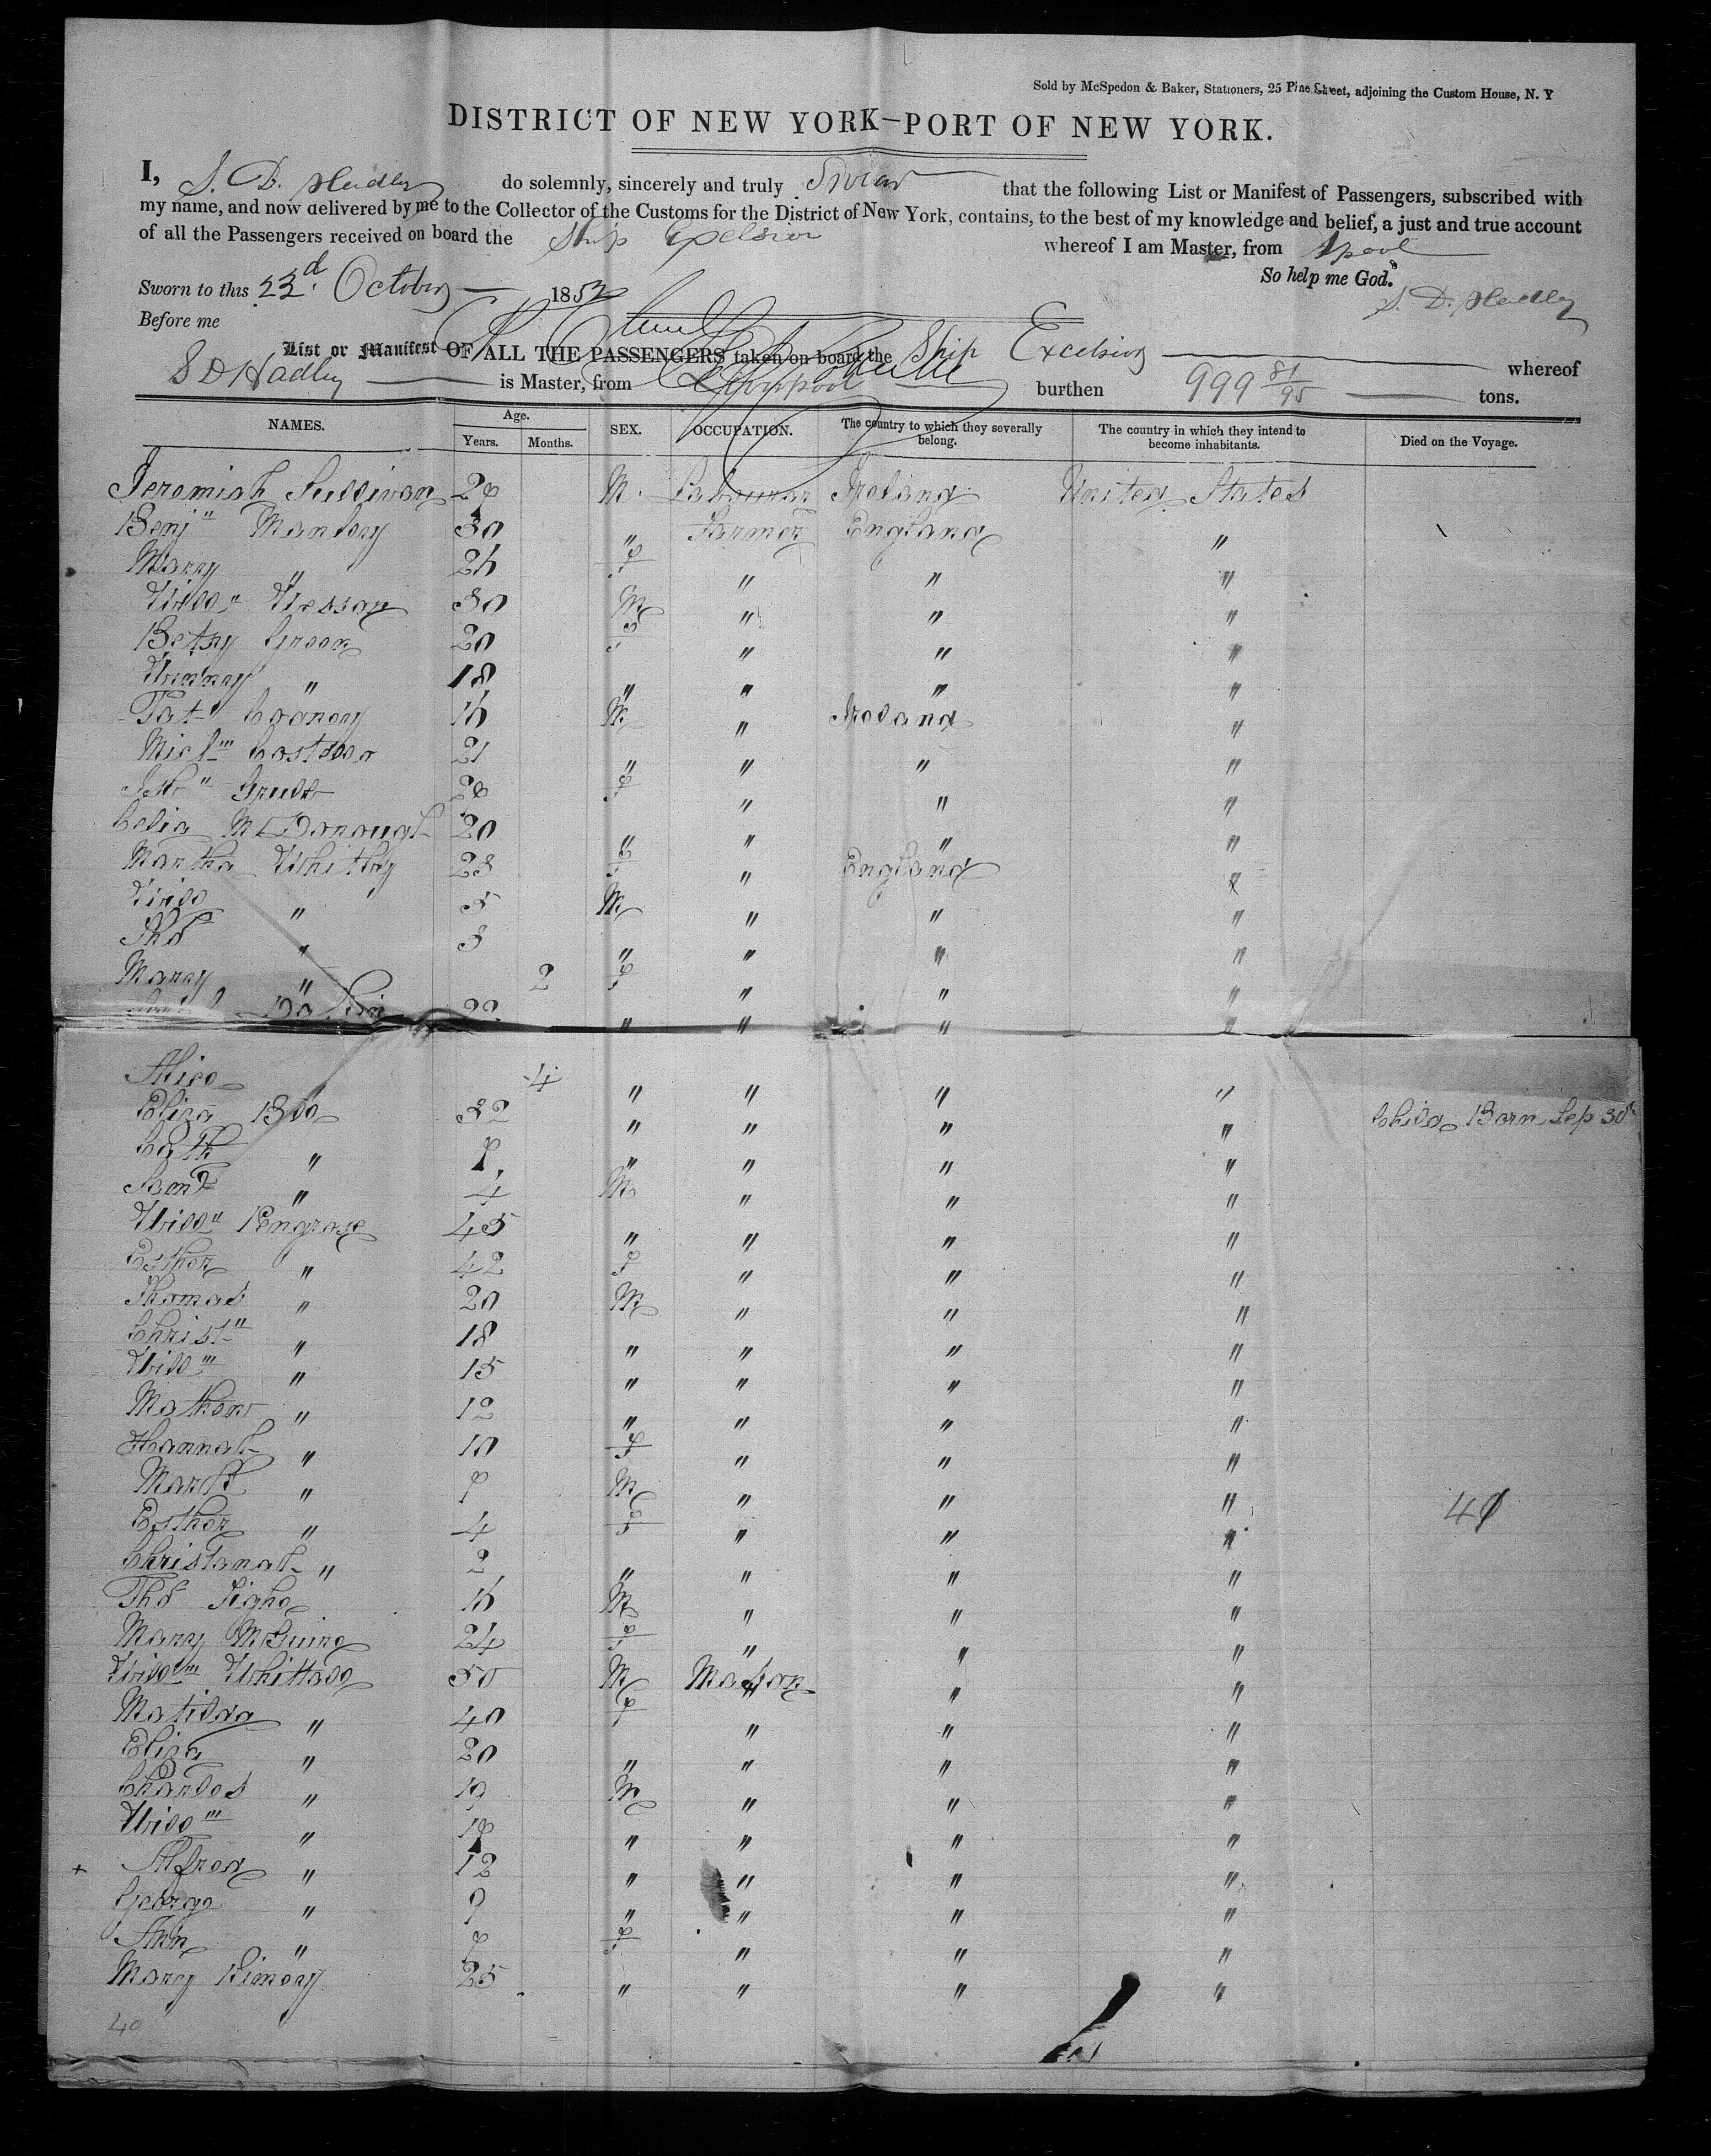 Sold by McSpedon & Baker, Stationers, 25 Pine Street, adjoining the Custom House, N. Y
DISTRICT OF NEW YORK—PORT OF NEW YORK.
I, S. D. Hadley do solemnly, sincerely and truly Swear that the following List or Manifest of Passengers, subscribed with
my name, and now delivered by me to the Collector of the Customs for the District of New York, contains, to the best of my knowledge and belief, a just and true account
of all the Passengers received on board the Ship Excelsior whereof I am Master, from Lpool
So help me God.
Sworn to this 23d. October 1852 S. D. Hadley
Before me
List or Manifest OF ALL THE PASSENGERS taken on board the Ship Excelsior whereof
S D Hadley is Master, from Liverpool burthen 999 81/95 tons.
NAMES. Age. Years. Months. SEX. OCCUPATION. The country to which they severally belong. The country in which they intend to become inhabitants. Died on the Voyage.
Jeremiah Sullivan 28 M. Labourer Ireland United States
Benj" 30 " Farmer England "
Mary " 26 F " " "
Will" 30 M " " "
Betsy Green 20 F " " "
" 18 " " " "
Pat 16 M " Ireland "
Mich Costello 21 " " " "
28 F " " "
Celia McDonough 20 " " " "
Martha Whitby 23 F " England "
Will " 5 M " " "
Thos " 3 " " " "
Mary " 2 F " " "
22 " " " "
Alice 4 " " " "
Eliza 32 " " " " Child Born Sep 30th
Cath " 7 " " " "
Saml " 4 M " " "
Will" Pengrase 45 " " " "
Esther " 42 F " " "
Thomas " 20 M " " "
Christ" " 18 " " " "
Will'" " 15 " " " "
Mathew " 12 " " " "
Hannah " 10 F " " "
" 7 M " " "
Esther " 4 F " " " 41
Christanah " 2 " " " "
Thos Tighe 16 M " " "
Mary McGuire 24 F " " "
Will'm Whittall 50 M Mason " "
Matilda " 40 F " " "
Eliza " 20 " " " "
Charles " 19 M " " "
Will'" " 18 " " " "
+ Alfred " 12 " " " "
George " 9 " " " "
Ann " 7 F " " "
Mary 25 " " " "
40